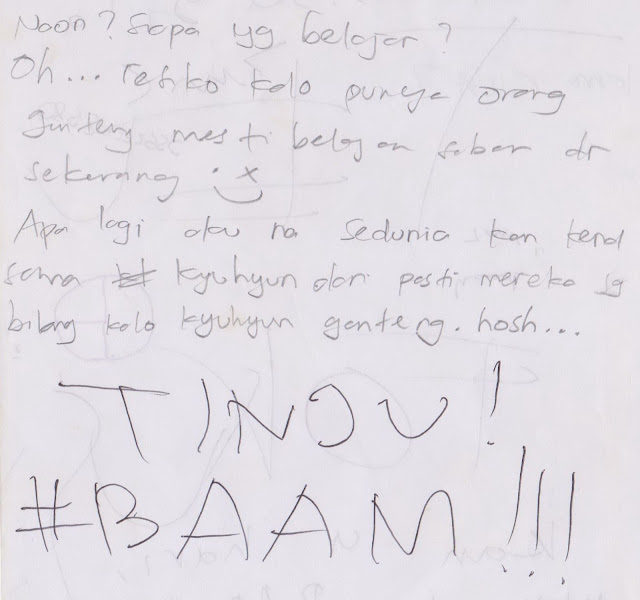 Naon? Siapa yg belajar?
Oh... resiko kalo punya orang
ganteng mesti belajar sabar dr
sekarang
Apa lagi aku na sedunia kan kenal
sama kyuhyun dari pasti mereka jg
bilang kalo kyuhyun ganteng. hosh...
TINJU!
#BAAM!!!